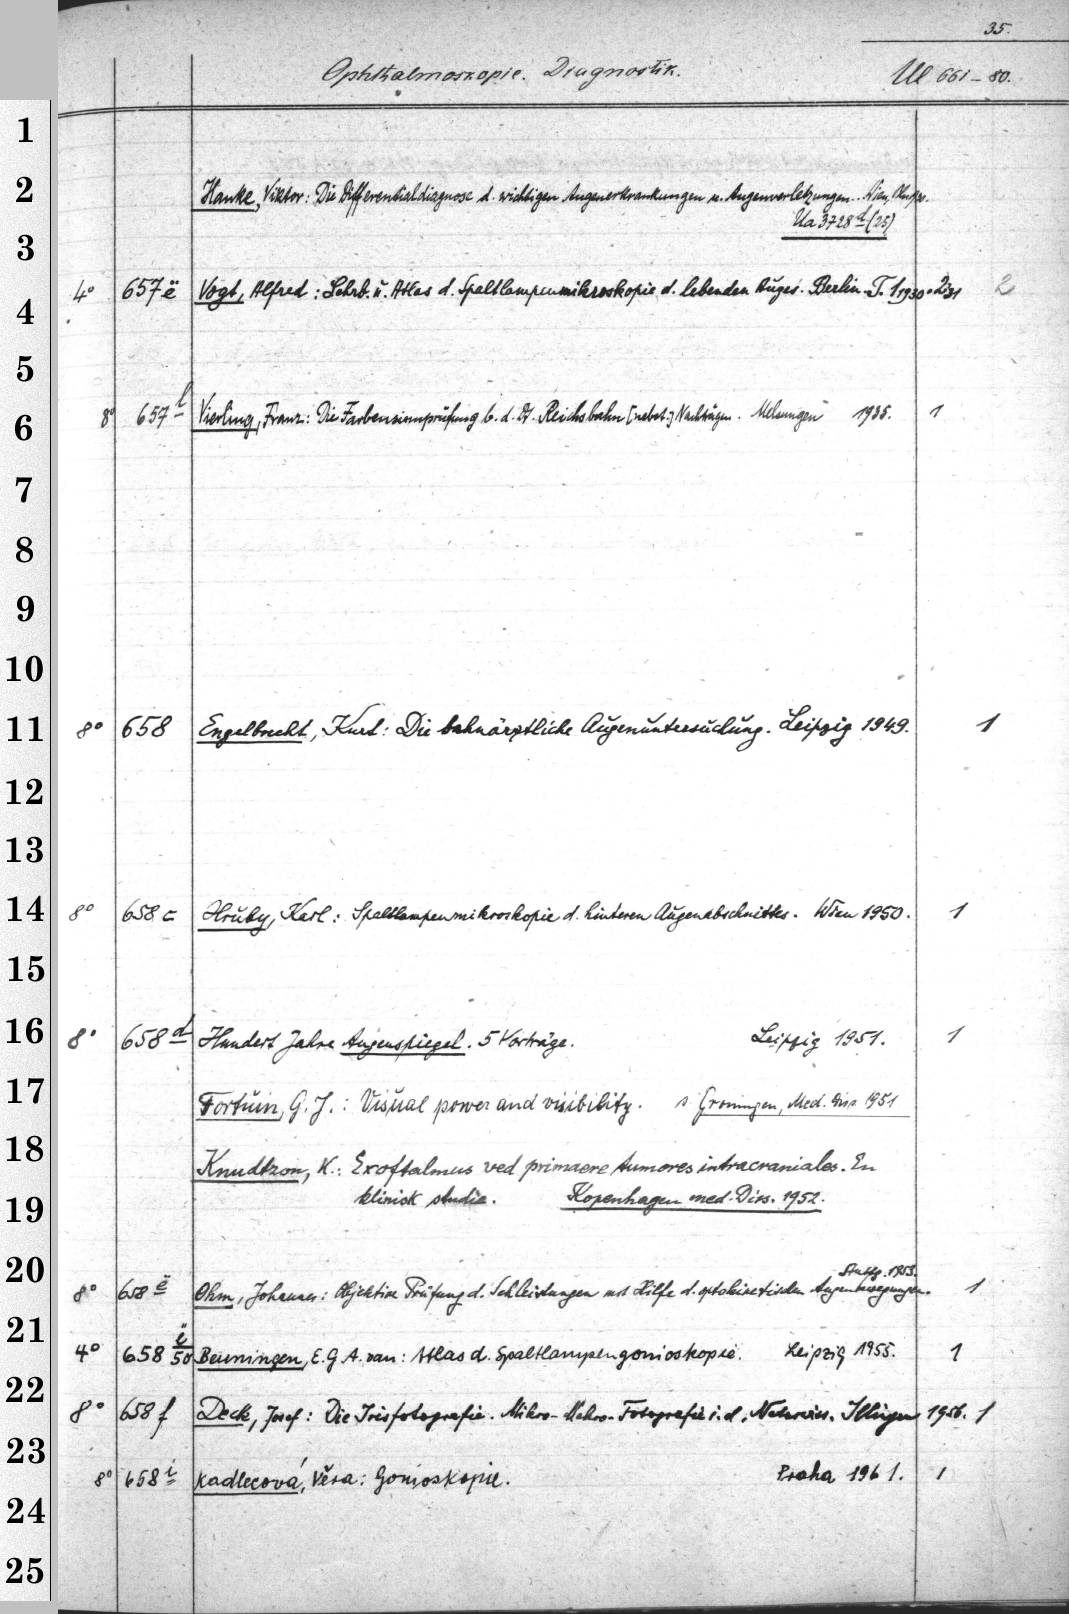 35.
Ophthalmoskopie. Diagnostik. Ul 661-80.
1
2 Hanke, Viktor: Die Differentialdiagnose d. wichtigen Augenerkrankungen u. Augenverletzungen. Wien,
Ua 3728 d (25)
3
4° 657 ë Vogt, Alfred: Lehrb. u. Atlas d. Spaltlampenmikroskopie d. lebenden Auges. Berlin. T. 1 1930. 2 31 2
4
5
6 8° 657 l Vierling, Franz: Die Farbensinnprüfung b. d. Dt. Reichsbahn [nebst] Nachträgen. Melsungen 1935. 1
7
8
9
10
11 8° 658 Engelbrecht, Kurt: Die bahnärztliche Augenuntersuchung. Leipzig 1949. 1
12
13
14 8° 658 c Hruby, Karl: Spaltlampenmikroskopie d. hinteren Augenabschnittes. Wien 1950. 1
15
16 8° 658 d Hundert Jahre Augenspiegel. 5 Vorträge. Leipzig 1951. 1
17 Fortuin, G. J.: Visual power and visibility. s Groningen, Med. Diss 1951
18 Knudtzon, K.: Exoftalmus ved primaere tumores intracraniales. En
19 klinisk studie. Kopenhagen med. Diss. 1952.
20 Stuttg. 1953.
8° 658 ë Ohm, Johannes: Objektive Prüfung d. Sehleistungen mit Hilfe d. optokinetischen Augenbewegungen. 1
21 4° 658 ë/50 Beuningen, E. G. A. van: Atlas d. Spaltlampengonioskopie. Leipzig 1955. 1
22 8° 658 f Deck, Josef: Die Irisfotografie. Mikro-Makro-Fotografie i. d. Naturwiss. Illingen 1956. 1
23 8° 658 i Kadlecová, Věra: Gonioskopie. Praha 1961. 1
24
25